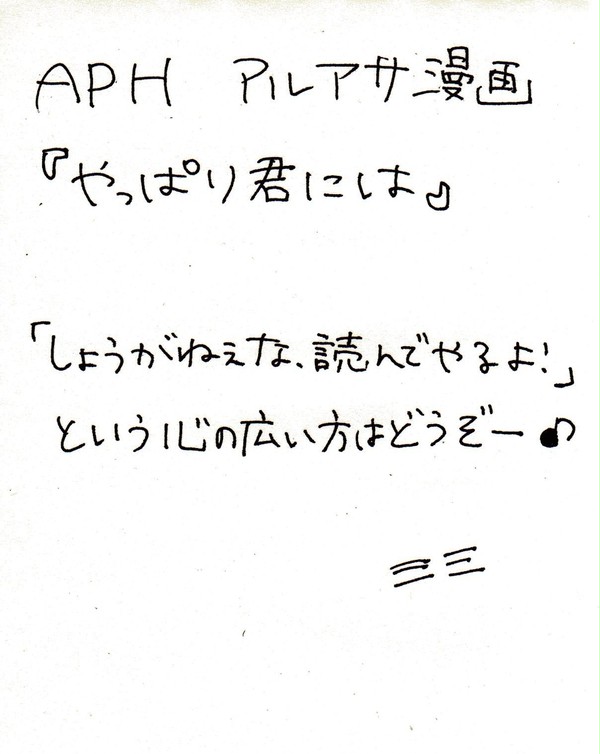 APH アルアサ漫画
『やっぱり君には』
「しょうがねぇな、読んでやるよ!」
という心の広い方はどうぞー♪